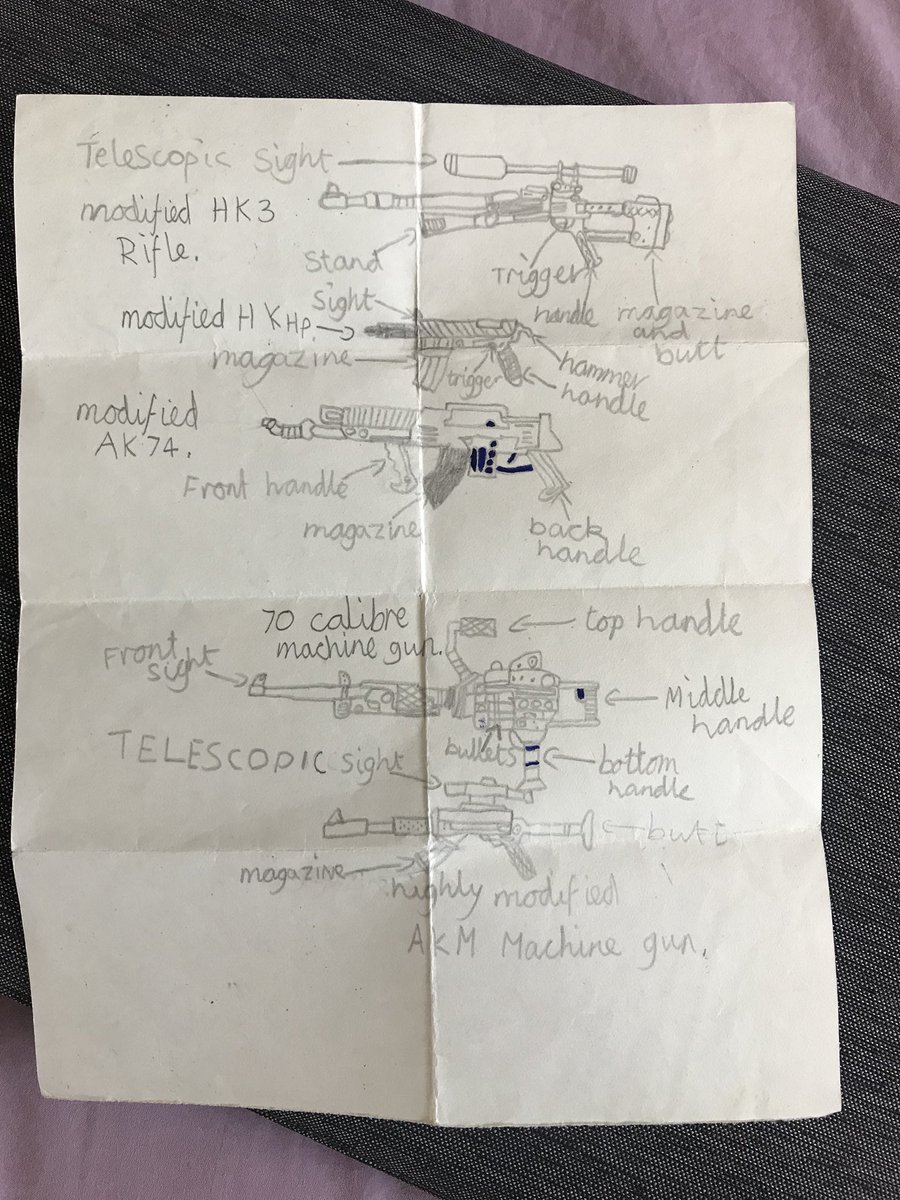 Telescopic sight
modified HK3
Rifle.
Stand
Trigger
handle
magazine
and
butt
Sight
modified HK HP.
magazine
trigger
hammer
handle
modified
AK 74.
Front handle
magazine
back
handle
70 calibre
machine gun.
top handle
Front
sight
Middle
handle
bullets
bottom
handle
TELESCOPIC sight
butt
magazine
highly modified
AKM Machine gun.